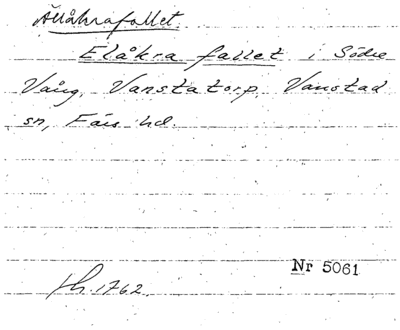 Ällåkrafallet.
Elåkra fallet i Södre
Vång, Vanstatorp, Vanstad
sn, Färs hd.
Nr 5061
fh. 1762.